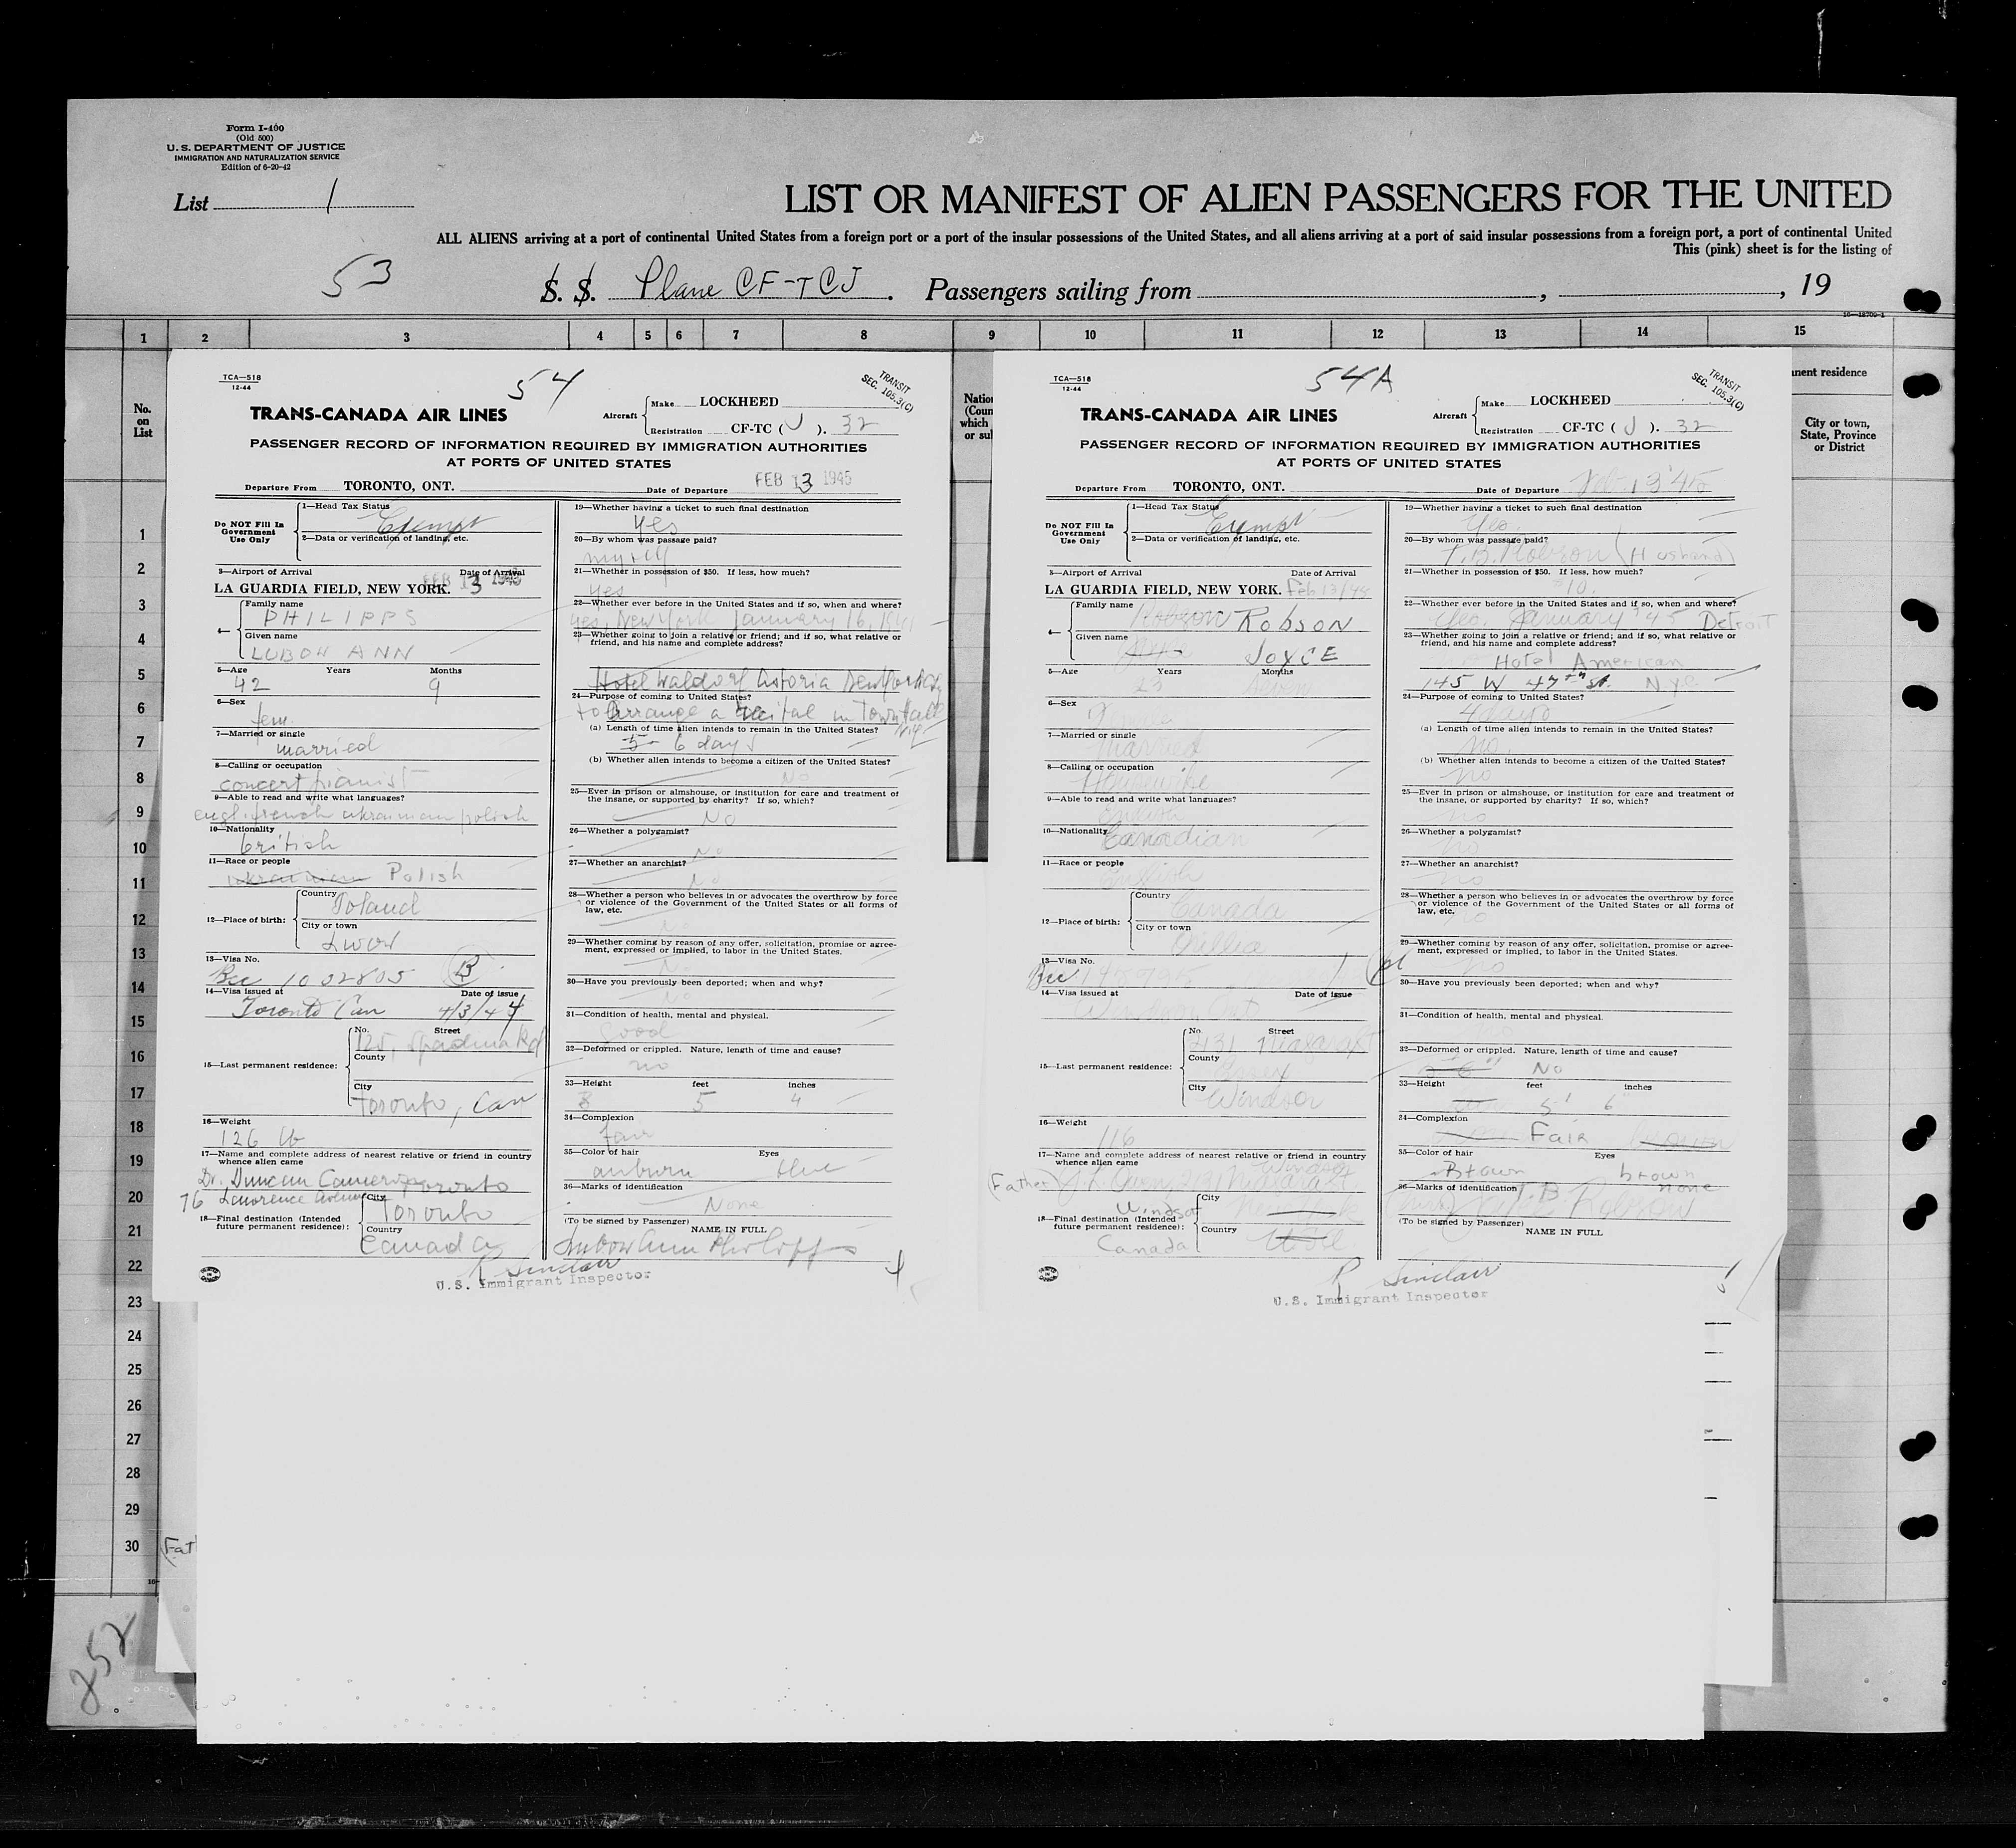 Form I-400
(Old 500)
U. S. DEPARTMENT OF JUSTICE
IMMIGRATION AND NATURALIZATION SERVICE
Edition of 6-20-42
List 1
LIST OR MANIFEST OF ALIEN PASSENGERS FOR THE UNITED
ALL ALIENS arriving at a port of continental United States from a foreign port or a port of the insular possessions of the United States, and all aliens arriving at a port of said insular possessions from a foreign port, a port of continental United
This (pink) sheet is for the listing of
53
S. S. Plane CF-TCJ. Passengers sailing from , , 19
1 2 3 4 5 6 7 8 9 10 11 12 13 14 15
No.
on
List
1
2
3
4
5
6
7
8
9
10
11
12
13
14
15
16
17
18
19
20
21
22
23
24
25
26
27
28
29
30
TCA—518
12-44
54
TRANSIT
SEC. 105.3(C)
TRANS-CANADA AIR LINES
Aircraft
Make LOCKHEED
Registration CF-TC (J). 32
PASSENGER RECORD OF INFORMATION REQUIRED BY IMMIGRATION AUTHORITIES
AT PORTS OF UNITED STATES
Departure From TORONTO, ONT. Date of Departure FEB 13 1945
Do NOT Fill In
Government
Use Only
1—Head Tax Status
Exempt
2—Data or verification of landing, etc.
3—Airport of Arrival Date of Arrival
LA GUARDIA FIELD, NEW YORK. FEB 13 1945
4—
Family name
PHILIPPS
Given name
LUBOW ANN
5—Age Years Months
42 9
6—Sex
fem.
7—Married or single
married
8—Calling or occupation
concert pianist
9—Able to read and write what languages?
engl. french ukrainian polish
10—Nationality
british
11—Race or people
ukrainian Polish
12—Place of birth:
Country
Poland
City or town
Lwow
13—Visa No.
Bcc 1032805 B
14—Visa issued at Date of issue
Toronto Can 4/3/44
15—Last permanent residence:
No. Street
125, Spadina Rd
County
City
Toronto, Can
16—Weight
126 lb
17—Name and complete address of nearest relative or friend in country
whence alien came
Dr. Duncan Cameron Toronto
76 Lawrence
18—Final destination (Intended
future permanent residence):
City
Toronto
Country
Canada
19—Whether having a ticket to such final destination
yes
20—By whom was passage paid?
myself
21—Whether in possession of $50. If less, how much?
yes
22—Whether ever before in the United States and if so, when and where?
yes, New York January 16,
23—Whether going to join a relative or friend; and if so, what relative or
friend, and his name and complete address?
Hotel Waldorf Astoria New York
24—Purpose of coming to United States?
to arrange a recital in Town Hall
(a) Length of time alien intends to remain in the United States?
5- 6 days
(b) Whether alien intends to become a citizen of the United States?
No
25—Ever in prison or almshouse, or institution for care and treatment of
the insane, or supported by charity? If so, which?
No
26—Whether a polygamist?
No
27—Whether an anarchist?
No
28—Whether a person who believes in or advocates the overthrow by force
or violence of the Government of the United States or all forms of
law, etc.
No
29—Whether coming by reason of any offer, solicitation, promise or agree-
ment, expressed or implied, to labor in the United States.
No
30—Have you previously been deported; when and why?
No
31—Condition of health, mental and physical.
Good
32—Deformed or crippled. Nature, length of time and cause?
no
33—Height feet inches
5 4
34—Complexion
fair
35—Color of hair Eyes
auburn blue
36—Marks of identification
None
(To be signed by Passenger) NAME IN FULL
Lubow Ann Philipps
R Sinclair
U.S. Immigrant Inspector
Nation
(Coun
which
or su
TCA—518
12-44
54A
TRANSIT
SEC. 105.3(C)
TRANS-CANADA AIR LINES
Aircraft
Make LOCKHEED
Registration CF-TC (J). 32
PASSENGER RECORD OF INFORMATION REQUIRED BY IMMIGRATION AUTHORITIES
AT PORTS OF UNITED STATES
Departure From TORONTO, ONT. Date of Departure Feb 13 '45
Do NOT Fill In
Government
Use Only
1—Head Tax Status
Exempt
2—Data or verification of landing, etc.
3—Airport of Arrival Date of Arrival
LA GUARDIA FIELD, NEW YORK. Feb 13/45
4—
Family name
Robson ROBSON
Given name
JOYCE
5—Age Years Months
23 Seven
6—Sex
Female
7—Married or single
Married
8—Calling or occupation
Housewife
9—Able to read and write what languages?
English
10—Nationality
Canadian
11—Race or people
English
12—Place of birth:
Country
Canada
City or town
Orillia
13—Visa No.
Bcc
14—Visa issued at Date of issue
Windsor Ont
15—Last permanent residence:
No. Street
231 Niagara St
County
Essex
City
Windsor
16—Weight
116
17—Name and complete address of nearest relative or friend in country
whence alien came
(Father) Niagara St Windsor
18—Final destination (Intended
future permanent residence):
City
Windsor
Country
Canada
19—Whether having a ticket to such final destination
Yes.
20—By whom was passage paid?
T.B. Robson (Husband)
21—Whether in possession of $50. If less, how much?
$10.
22—Whether ever before in the United States and if so, when and where?
Yes. January '45 Detroit
23—Whether going to join a relative or friend; and if so, what relative or
friend, and his name and complete address?
Hotel American
145 W 47th St. N.Y.C
24—Purpose of coming to United States?
4 days
(a) Length of time alien intends to remain in the United States?
no.
(b) Whether alien intends to become a citizen of the United States?
no
25—Ever in prison or almshouse, or institution for care and treatment of
the insane, or supported by charity? If so, which?
no
26—Whether a polygamist?
no
27—Whether an anarchist?
no
28—Whether a person who believes in or advocates the overthrow by force
or violence of the Government of the United States or all forms of
law, etc.
29—Whether coming by reason of any offer, solicitation, promise or agree-
ment, expressed or implied, to labor in the United States.
no
30—Have you previously been deported; when and why?
31—Condition of health, mental and physical.
32—Deformed or crippled. Nature, length of time and cause?
No
33—Height feet inches
5' 6"
34—Complexion
Fair
35—Color of hair Eyes
Brown brown
36—Marks of identification
none
T.B. Robson
(To be signed by Passenger) NAME IN FULL
R Sinclair
U.S. Immigrant Inspector
nent residence
City or town,
State, Province
or District
(Fat
252